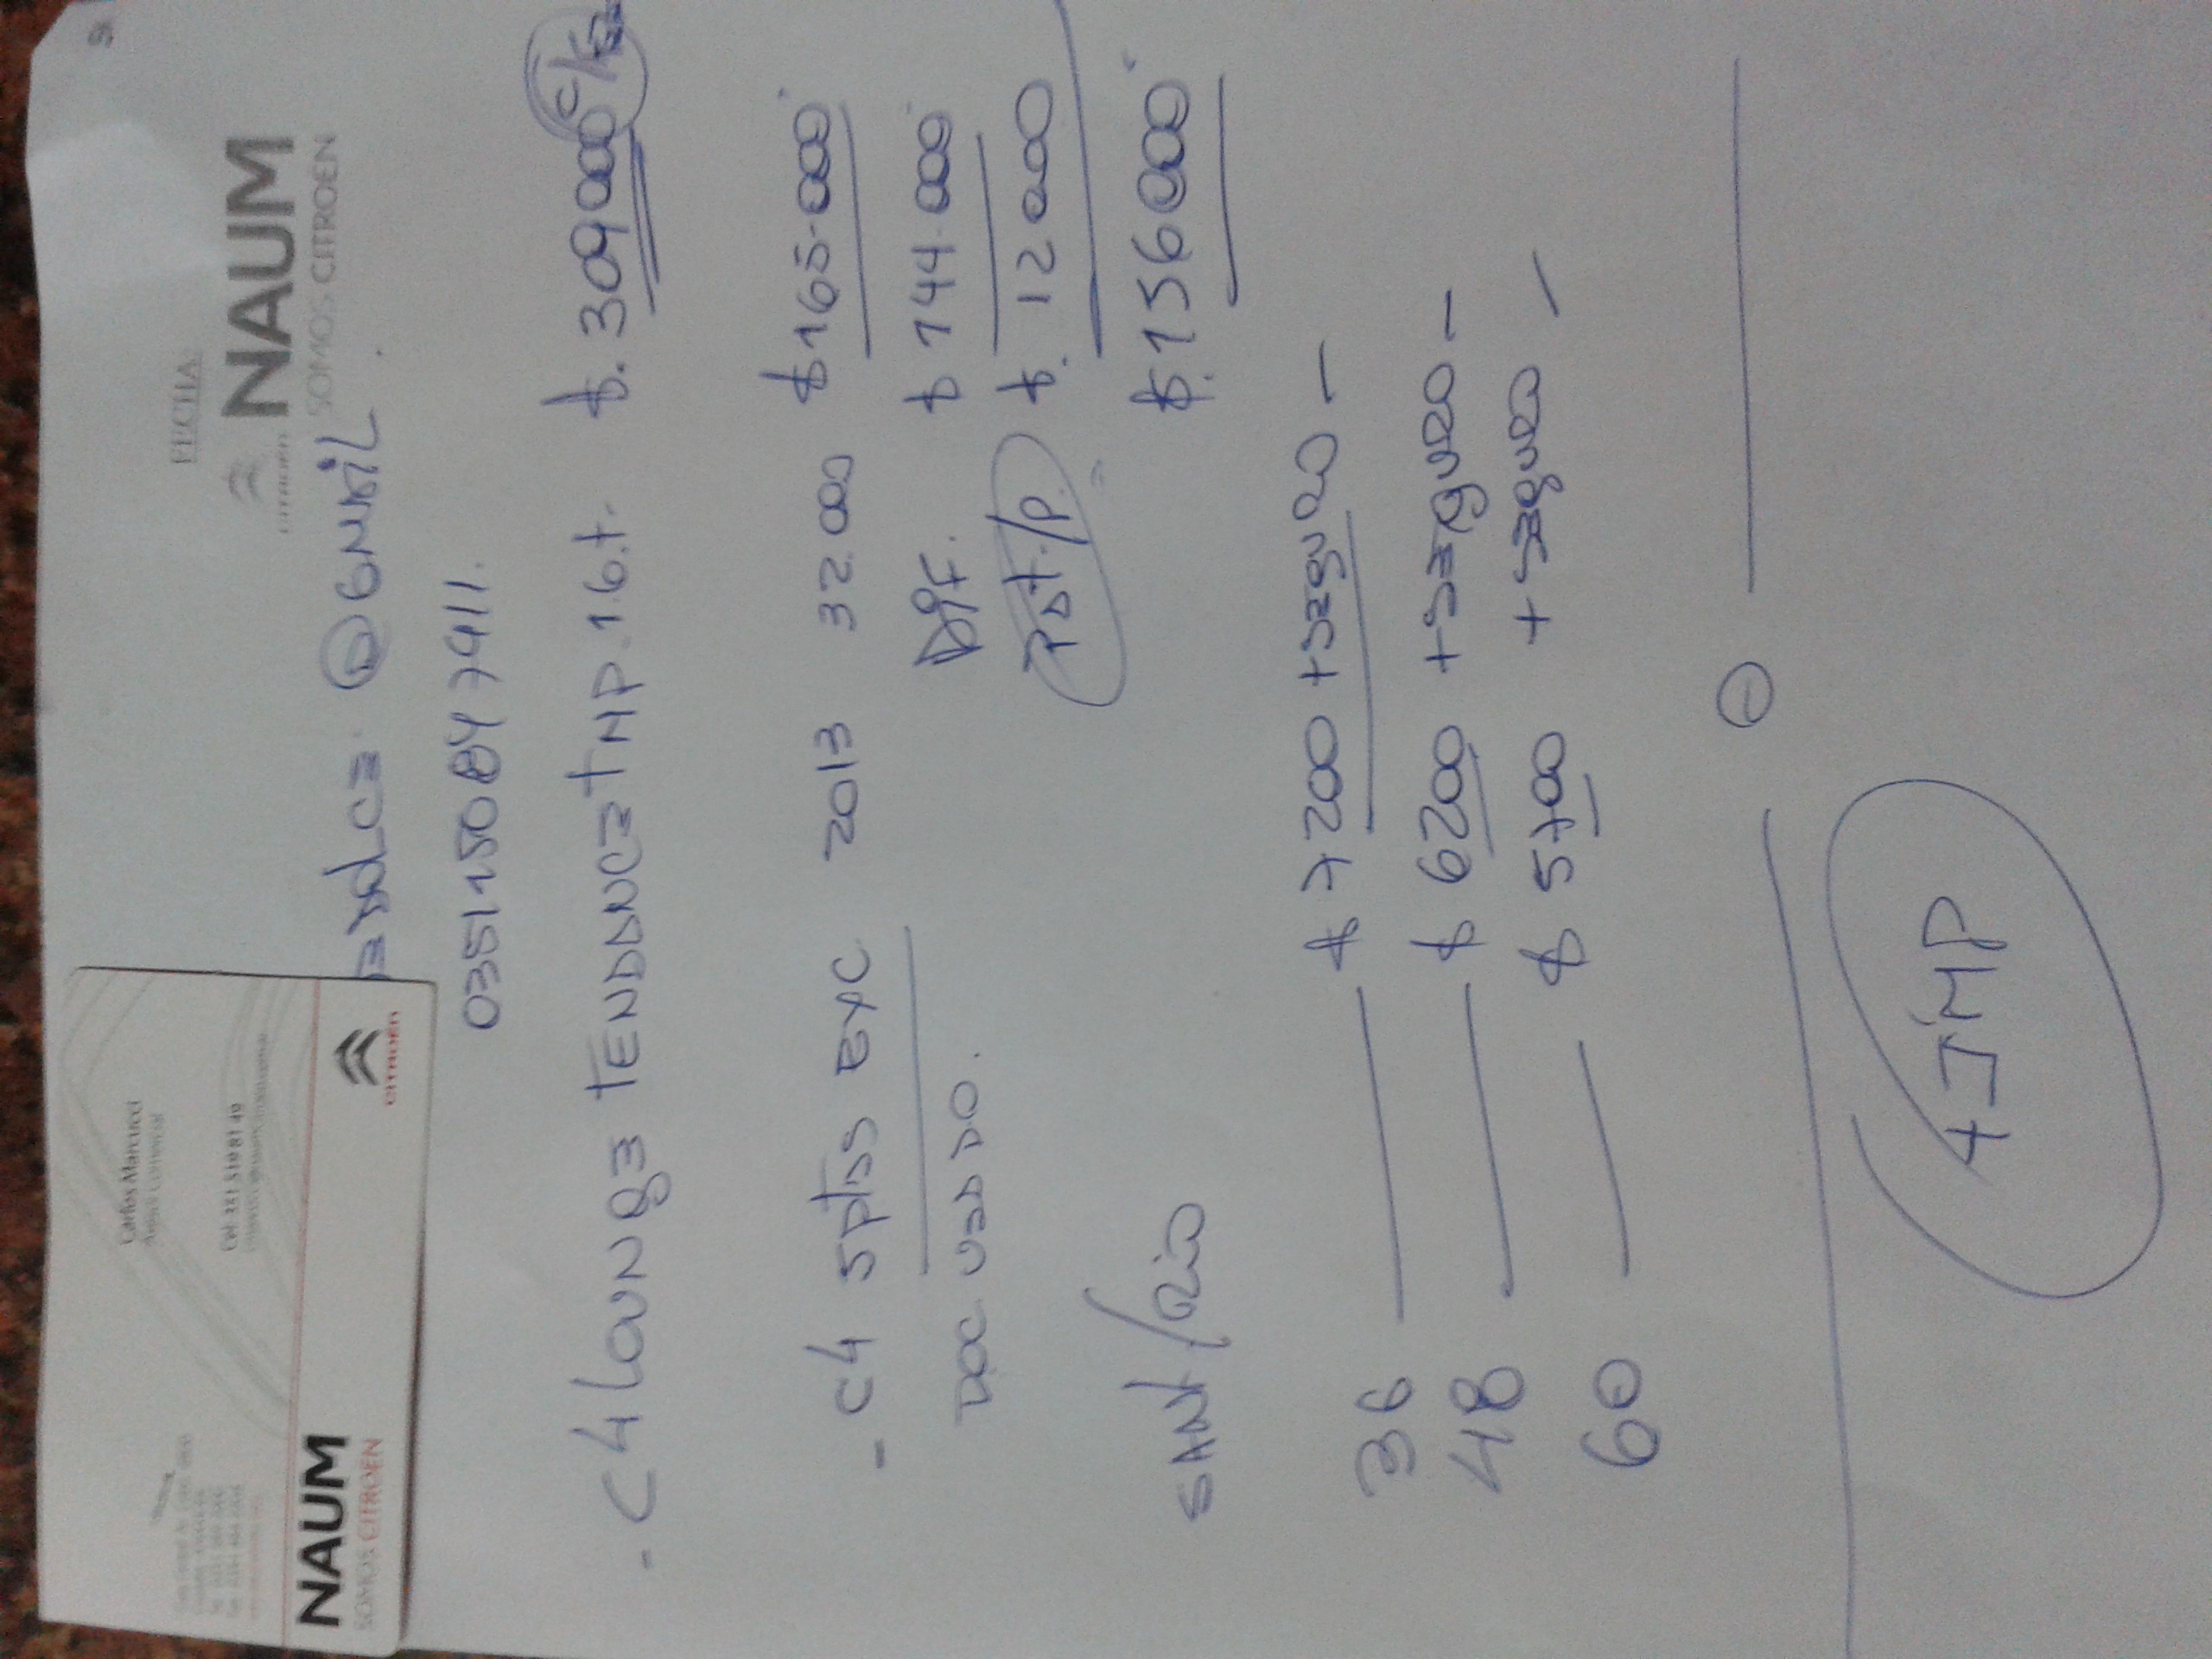 Carlos Marcucci
Asesor Comercial
Cel: 351 519 81 49
NAUM
SOMOS CITROËN
CITROËN
FECHA:
CITROËN NAUM
SOMOS CITROËN
@ GMAIL
0351150847911.
- C4 LOUNGE TENDANCE + MP. 1.6.t. $. 309000 c/
- C4 5ptas EXC 2013 32.000 $ 165.000
DOC. USADO.
DIF. $ 144.000
Pat./P. $. 12000
$. 156000
SANT/RIO
36 $ 7200 + SEGURO -
48 $ 6200 + SEGURO -
60 $ 5700 + SEGURO -
+ IMP